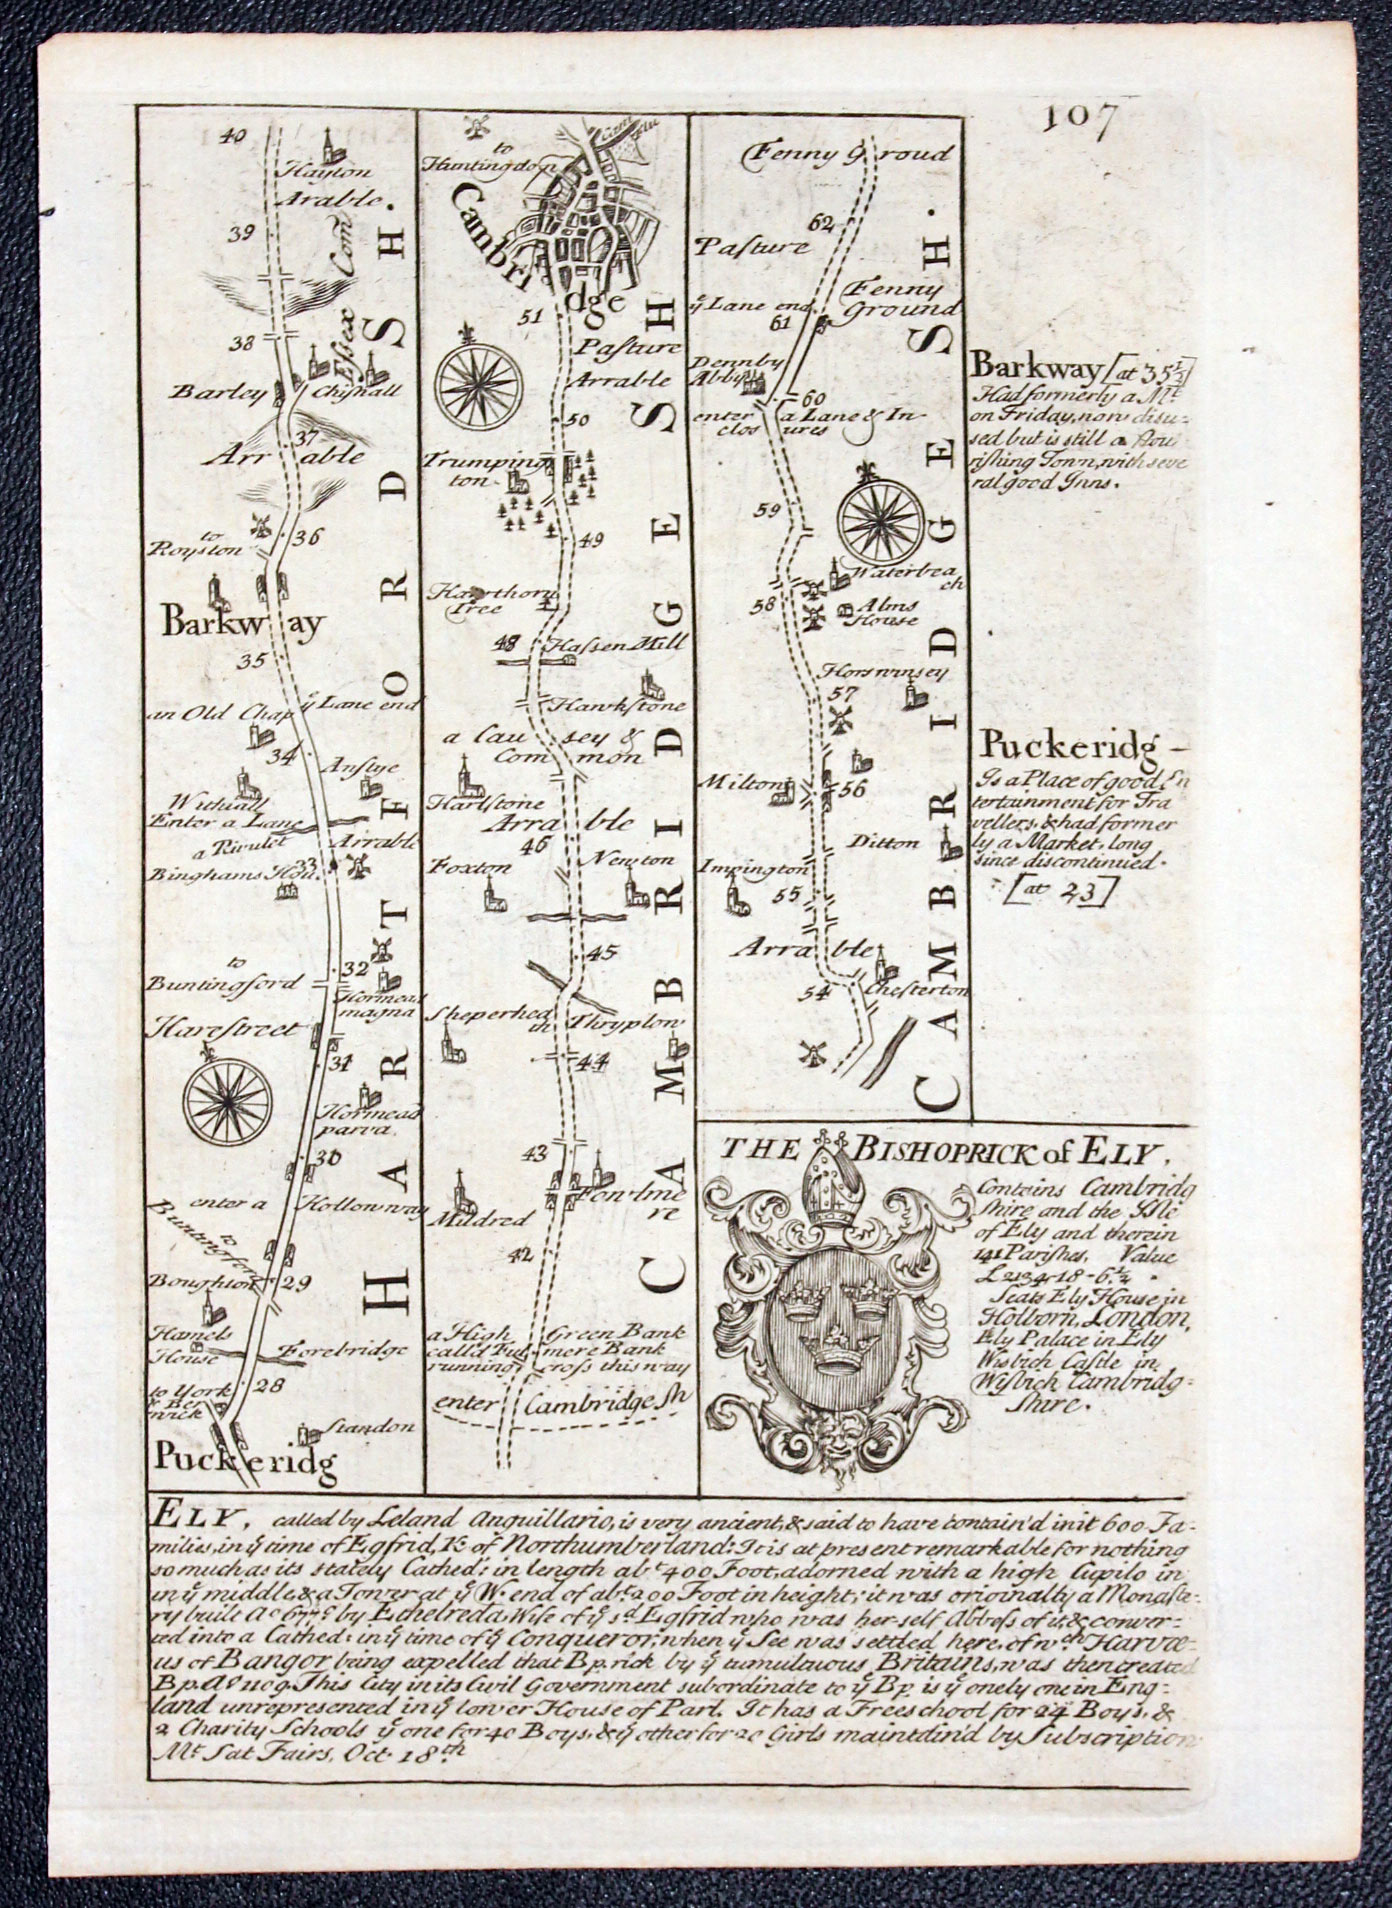 107
40
Hayton
Arable.
39
Essex Com
38
Barley
Chishall
37
Arr able
to
Royston
36
Barkway
35
an Old Chap
ye Lane end
34
Anstye
Withiall
Enter a Lane
a Rivulet
Arrable
33
Binghams Hou.
32
to
Buntingford
Hormead
magna
Harestreet
31
Hormead
parva.
30
enter a Hollow way
to
Buntingford
Boughton
29
Hamels
House
Forebridge
28
to York
& Ber
wick
Standon
Puckeridg
HARTFORDSH.
to
Huntingdon
Cam flu
Cambridge
51
Pasture
Arrable
50
Trumping
ton
49
Hawthorn
Tree
48
Hassen Mill
Hawkstone
a Causey &
Common
Harlstone
Arra ble
46
Foxton
Newton
45
Sheperhea
th
Thryplow
44
43
Fowlme
re
Mildred
42
a High Green Bank
call'd Ful mere Bank
running cross this way
enter Cambridge Sh
CAMBRIDGESH
Fenny Groud
62
Pasture
Fenny
Ground
ye Lane end
61
Dennby
Abby
60
enter a Lane & In
clos ures
59
Waterbea
ch
58
Alms
House
Horswinsey
57
Milton
56
Ditton
Impington
55
Arra ble
54
Chesterton
CAMBRIDGESH.
Barkway [at 35½]
Had formerly a Mt.
on Friday, now disu-
sed but is still a flou
rishing Town, with seve
ral good Inns.
Puckeridg
Is a Place of good En
tertainment for Tra
vellers, & had former
ly a Market, long
since discontinued.
[at 23]
THE BISHOPRICK of ELY,
Contains Cambridg
shire and the Isle
of Ely and therein
141 Parishes. Value
£2134-18-6½.
Seats Ely House in
Holborn, London,
Ely Palace in Ely
Wisbich Castle in
Wisbich Cambridg=
shire.
ELY, called by Leland Anguillario, is very ancient, & said to have contain'd in it 600 Fa-
milies, in ye time of Egfrid, K. of Northumberland: It is at present remarkable for nothing
so much as its stately Cathed: in length abt. 400 Foot, adorned with a high Cupilo in
in ye middle, & a Tower at ye W. end of abt. 200 Foot in height; it was originally a Monaste-
ry built Ao 677 by Ethelreda, Wife of ye sd Egfrid who was her self Abbess of it, & conver=
ted into a Cathed: in ye time of ye Conqueror, when ye See was settled here, of wch Harvæ-
us of Bangor being expelled that Bp.rick by ye tumultuous Britains, was then created
Bp. Ao 1109. This City in its Civil Government subordinate to ye Bp. is ye onely one in Eng-
land unrepresented in ye lower House of Parl. It has a Free school for 24 Boys, &
2 Charity Schools ye one for 40 Boys, & ye other for 20 Girls maintdin'd by Subscription
Mt. Sat Fairs, Oct. 18th